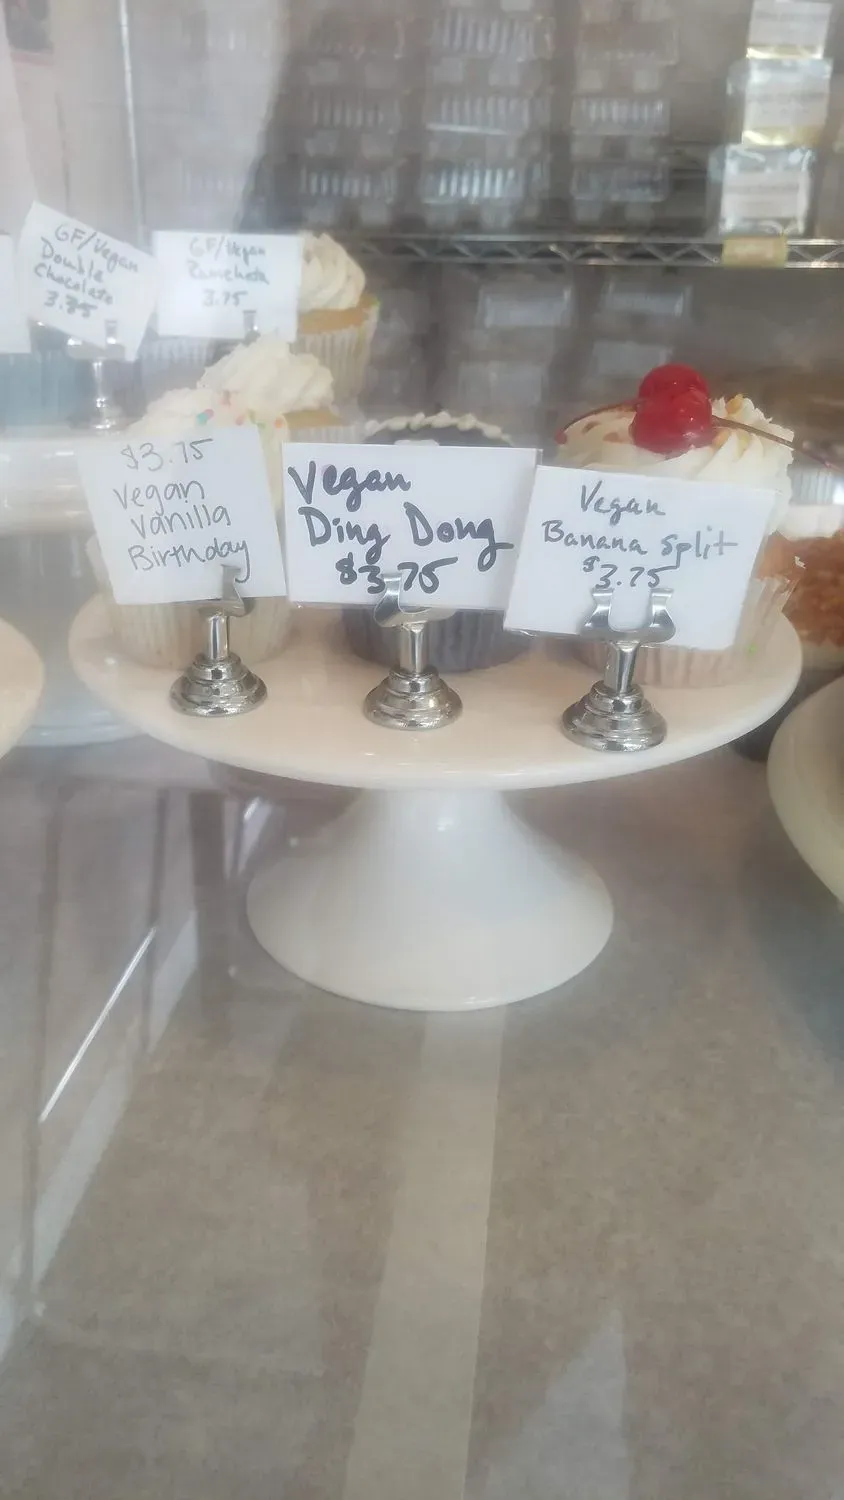 GF/Vegan
Double
Chocolate
GF/Vegan
3.75
$3.75
Vegan
Vanilla
Birthday
Vegan
Ding Dong
$3.75
Vegan
Banana Split
$3.75